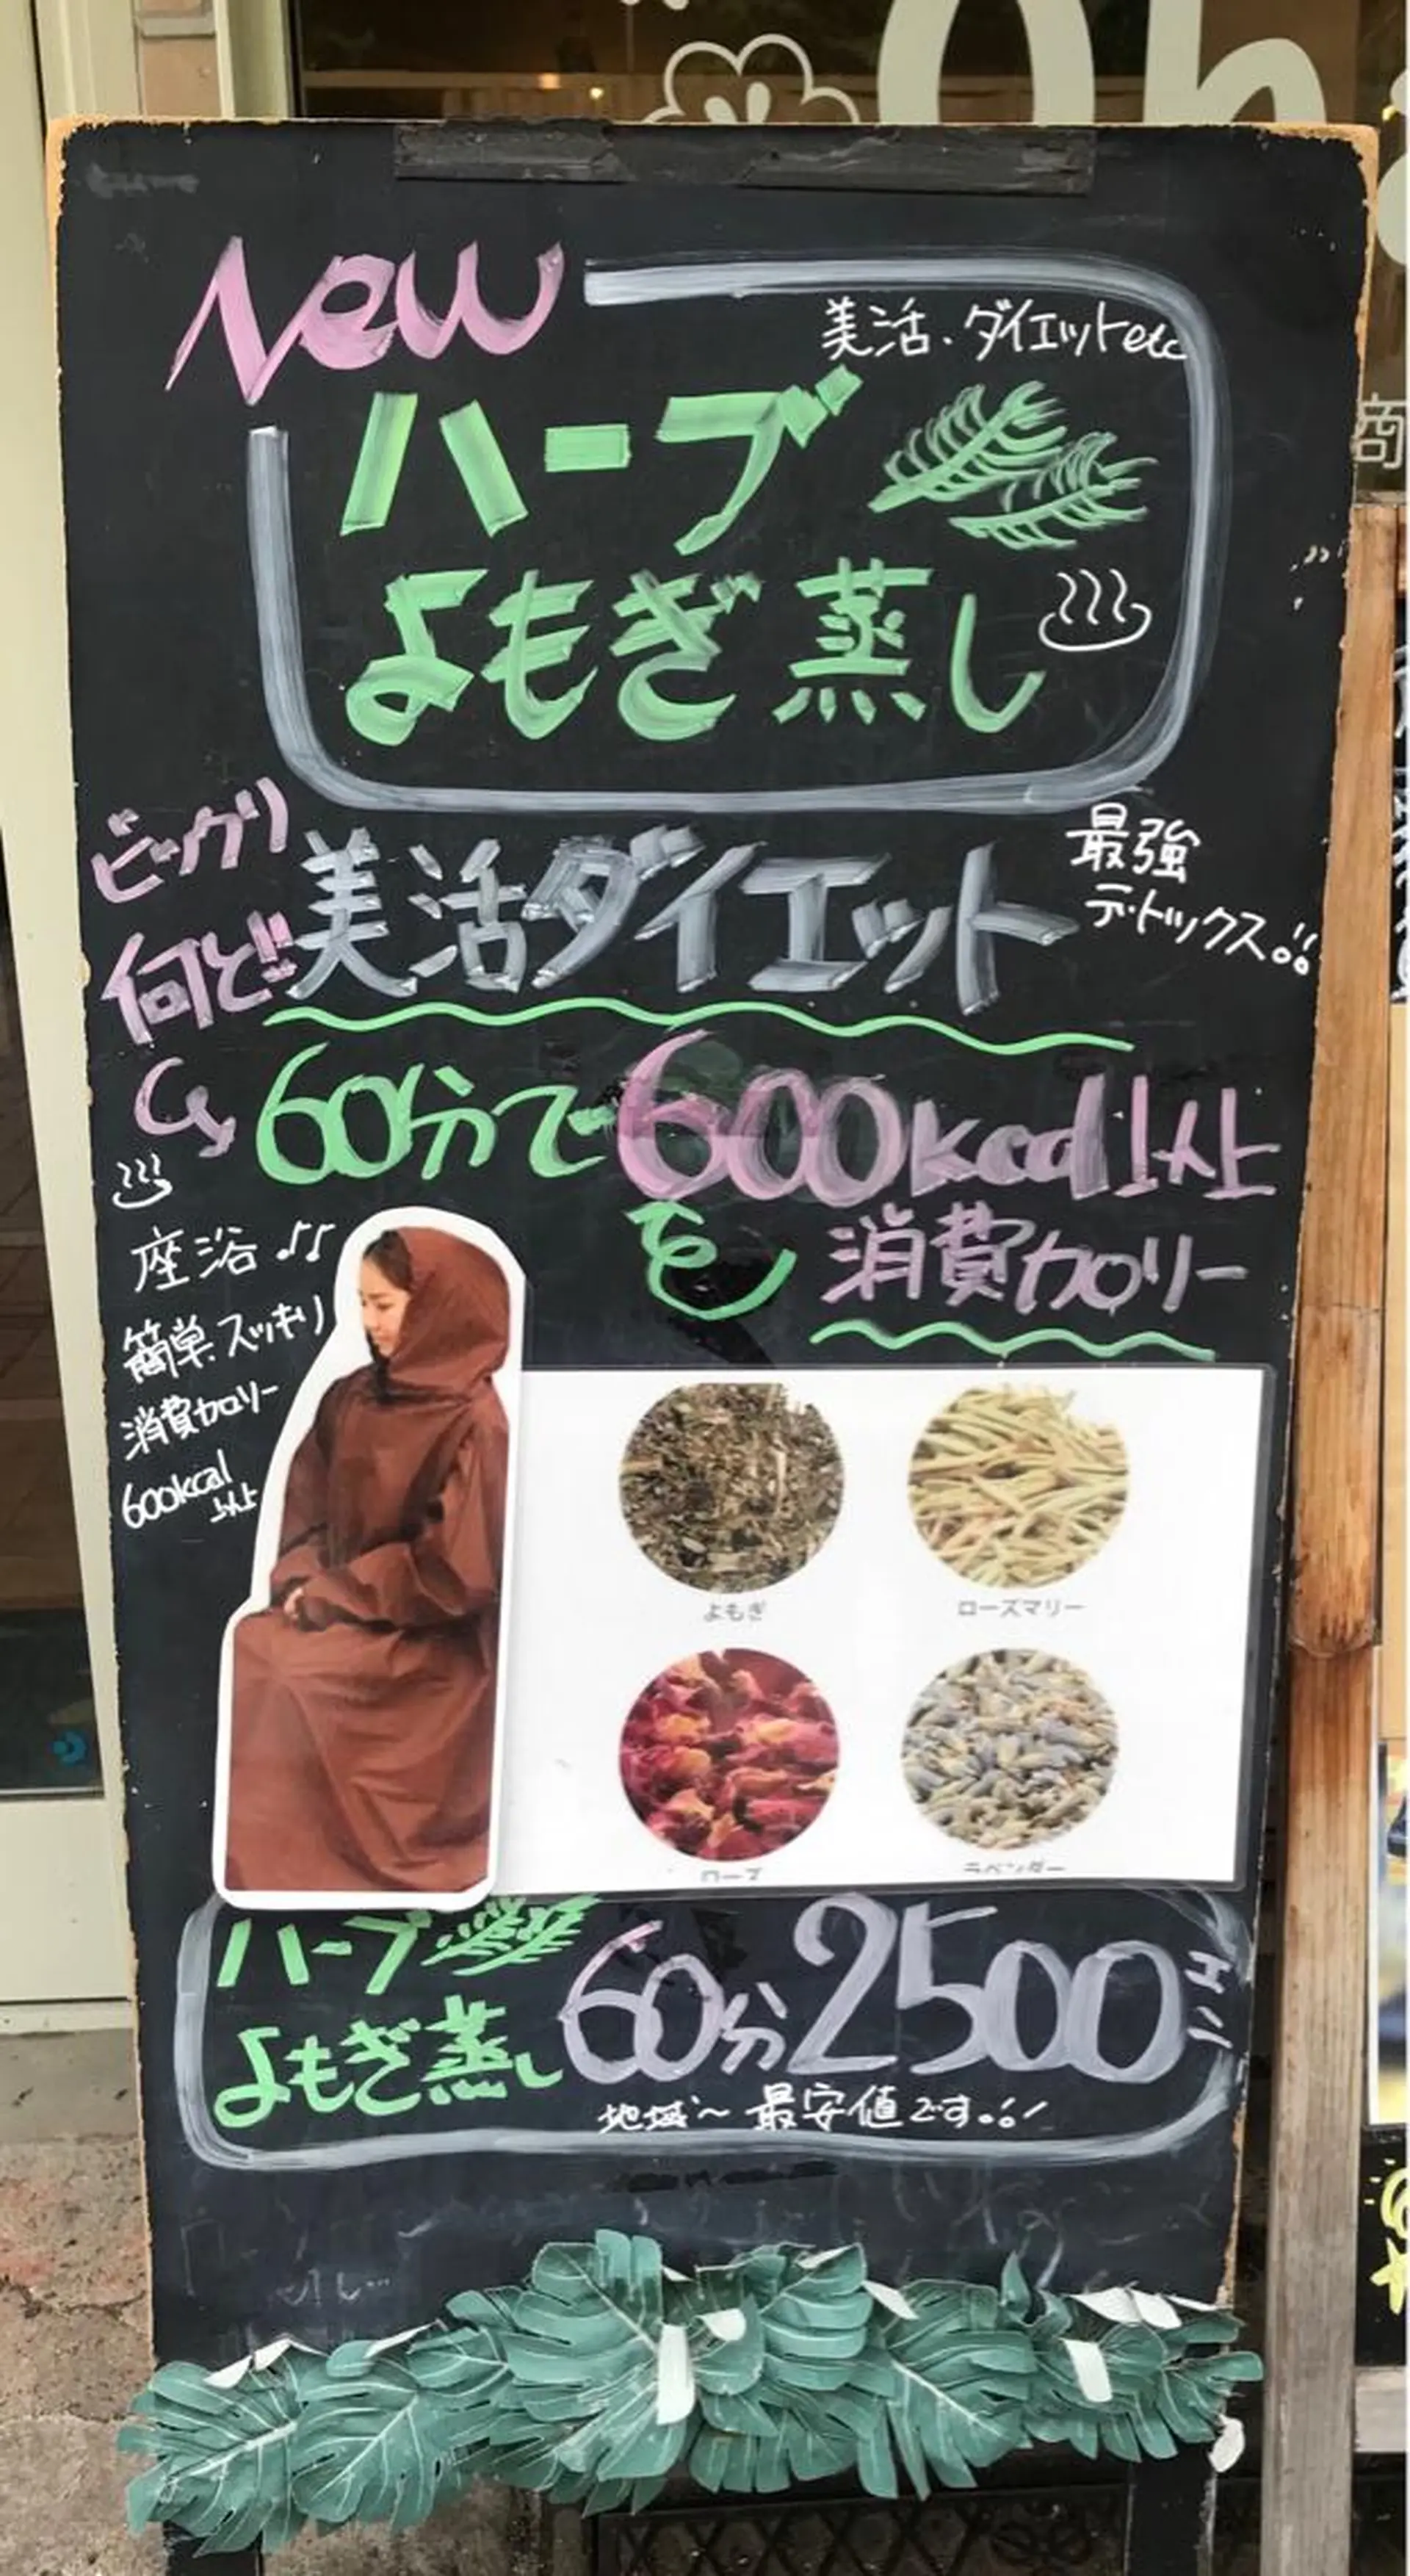 Oh
商
New
美活・ダイエットetc
ハーブ
よもぎ蒸し
ビックリ
何と!!
美活ダイエット
最強
デトックス!!
60分で600kcal以上
を消費カロリー
座浴♪♫
簡単スッキリ
消費カロリー
600kcal
以上
よもぎ
ローズマリー
ローズ
ラベンダー
ハーブ
よもぎ蒸し
60分2500エン
地域〜最安値です!!